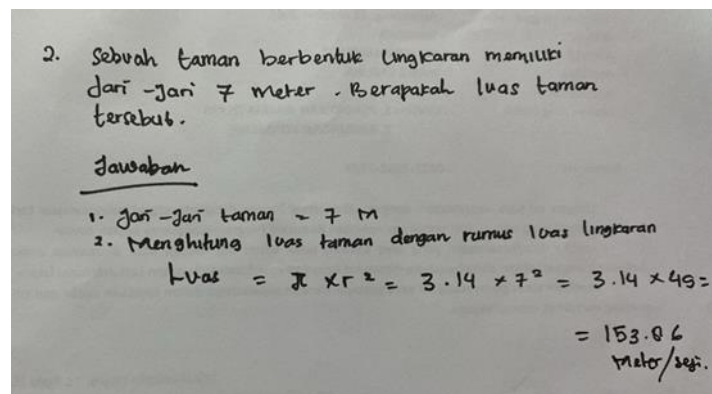 2. Sebuah taman berbentuk lingkaran memiliki
Jari-Jari 7 meter. Berapakah luas taman
tersebut.
Jawaban
1. Jari-Jari taman = 7 M
2. Menghitung luas taman dengan rumus luas lingkaran
Luas = π x r² = 3.14 x 7² = 3.14 x 49 =
= 153.86
Meter/segi.